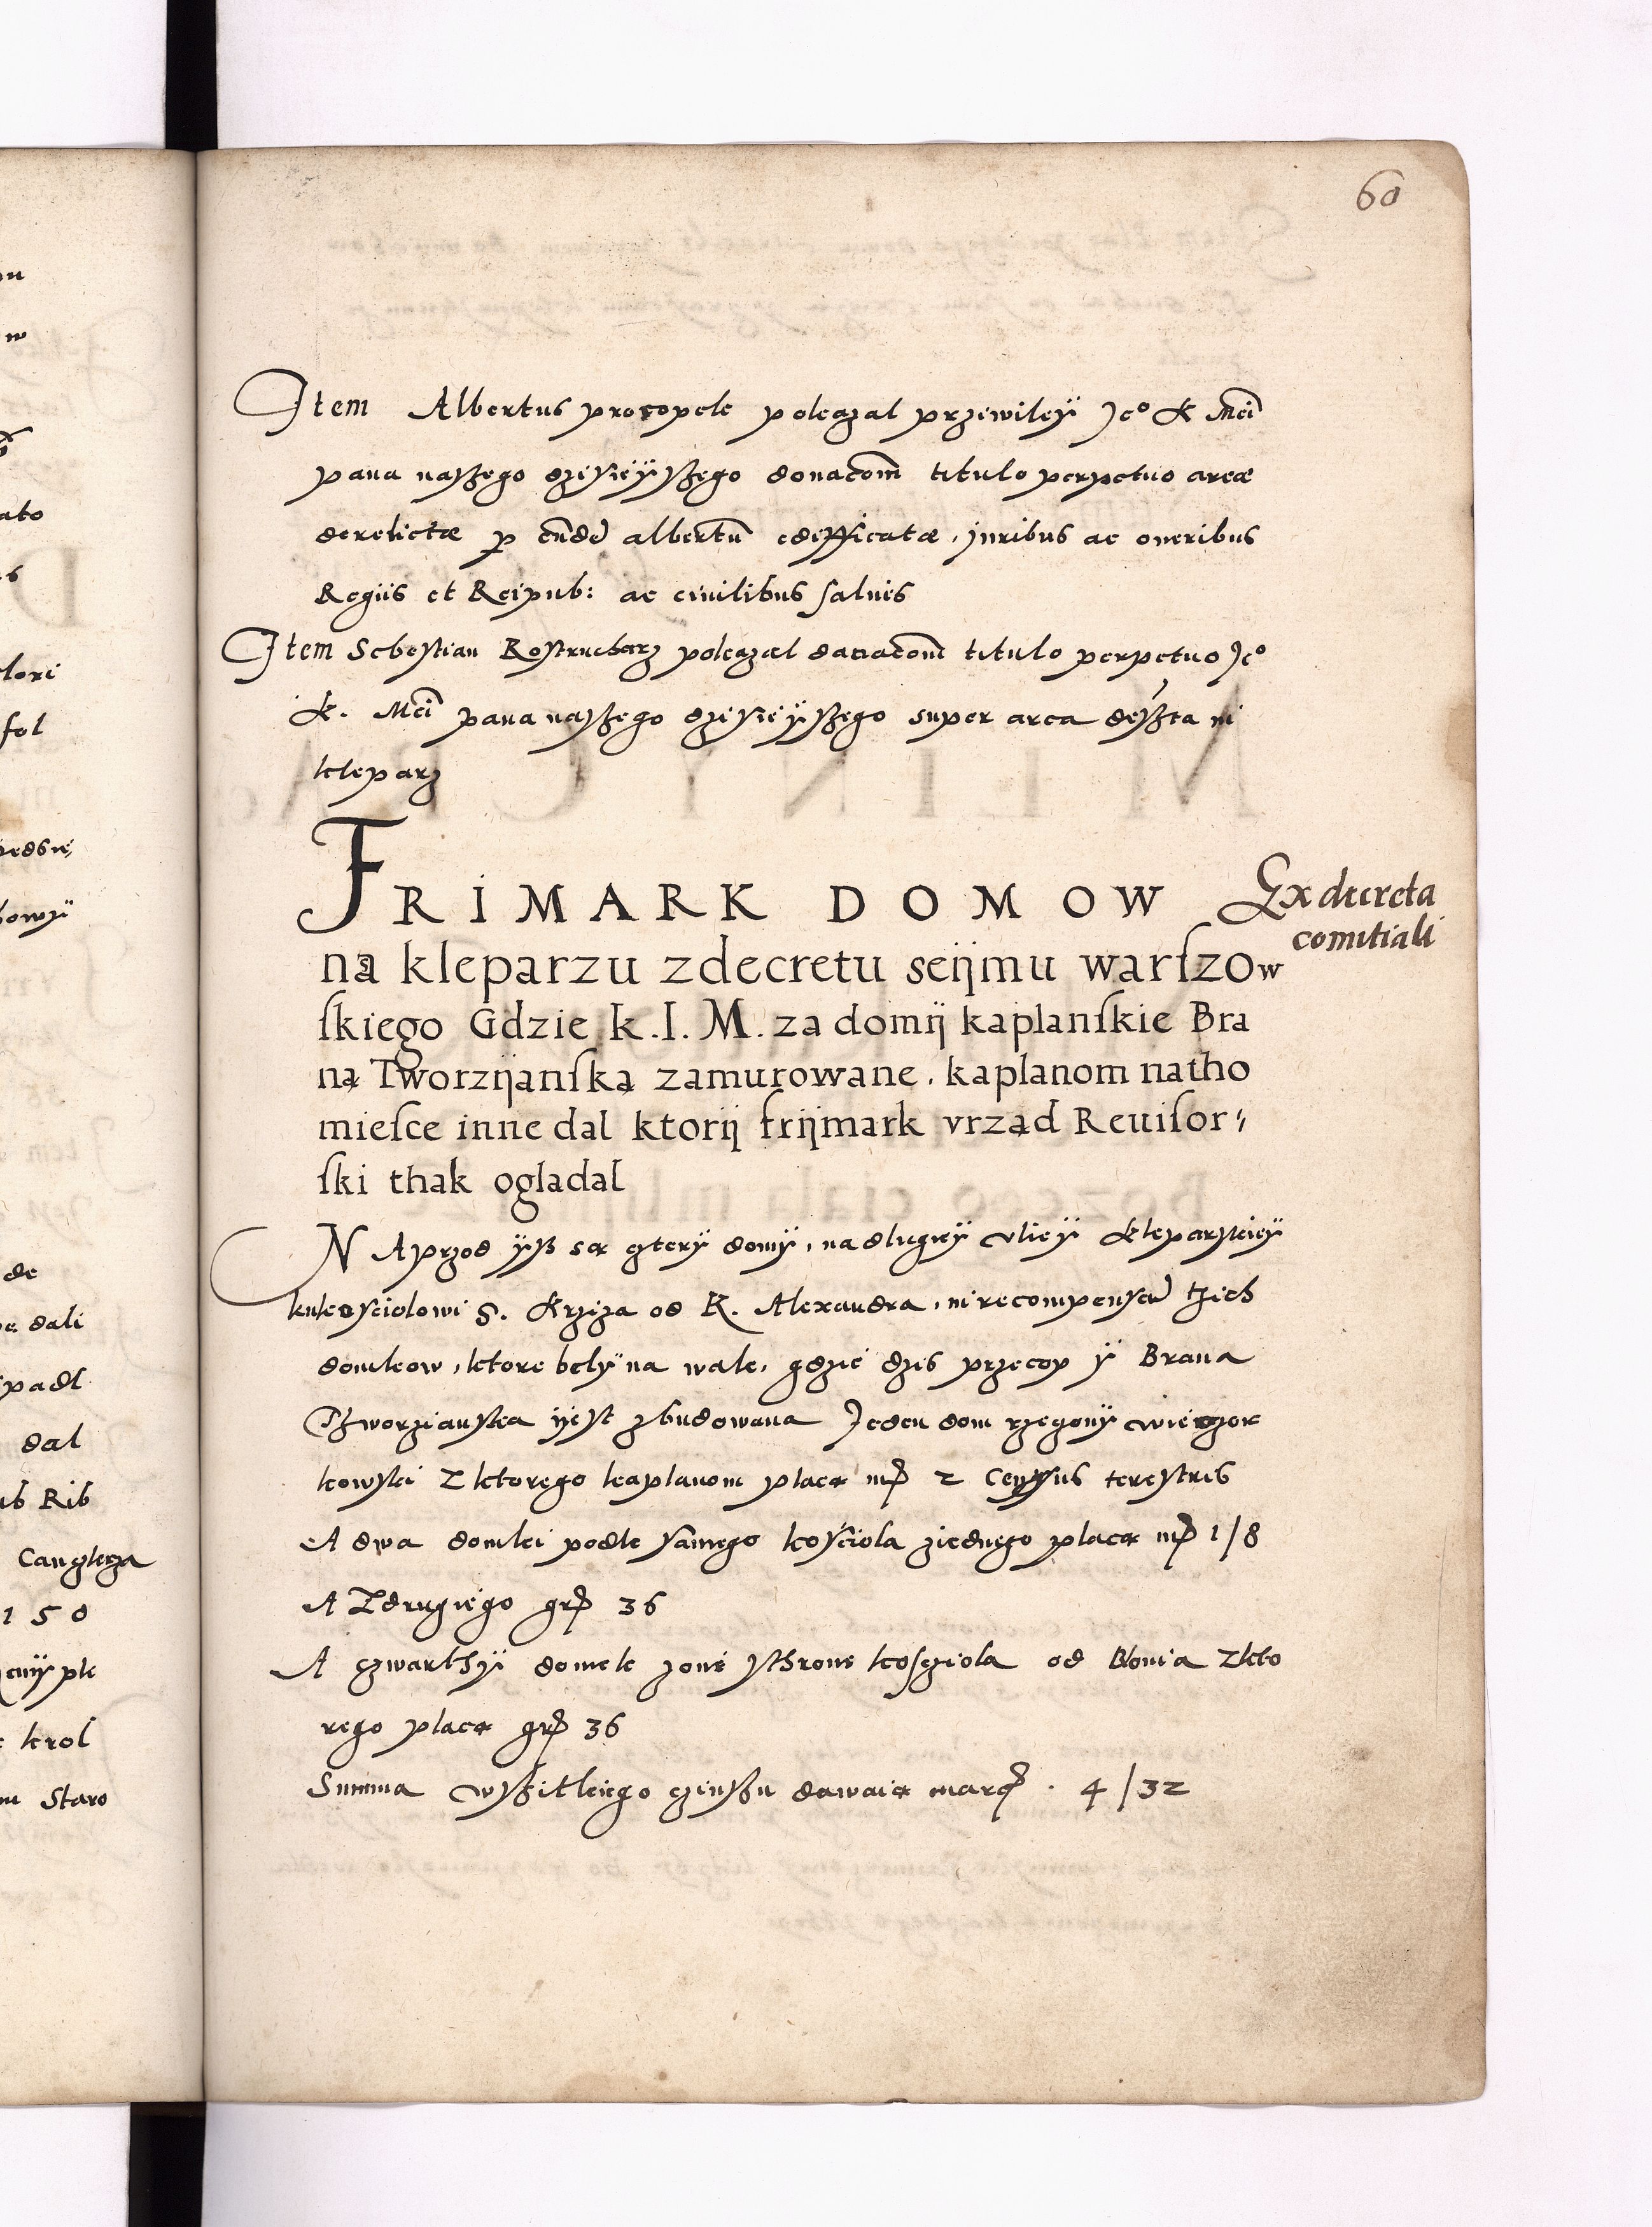 60
Item Albertus procopek pokazal przewiley Jeo K Mci
pana naszego dzisieyszego donacom titulo perpetuo areæ
derelictæ per eunde albertu edifficatæ, juribus ac oneribus
Regiis et Reipub: ac ciuilibus saluis
Item Sebestian Rostrucharz pokazal donacom titulo perpetuo Jeo
K. Mci pana naszego dzisieyszego super area
kleparz
FRIMARK DOMOW
Ex decreta
comitiali
na kleparzu zdecretu seijmu warſzow
ſkiego Gdzie k.I.M. za domij kaplanſkie Bra
ną Tworzijanſką zamurowane, kaplanom natho
mieſce inne dal ktorij frijmark vrząd Reuiſor⸗
ſki thak ogladal
NAprzod ysz są cztery domy, na dlugiey vliey Kleparskiey
ku kosciolowi S. Krziza od K. Alexandra, in recompensa tzich
domkow, ktore bely na wale, gdzie dzis przecop y Brana
Tzworzianska iest zbudowana Jeden dom rzegony
kowski Z ktorego kaplanom placą mr 2 Census terestris
A dwa domki podle samego kosciola ziednego placą mr 1/8
A Zdrugiego gr 36
A czwarthy domek zone sthrone kosziola od Blonia Zkto
rego placą gr 36
Summa wszitkiego czinszu dawaią marc. 4/32